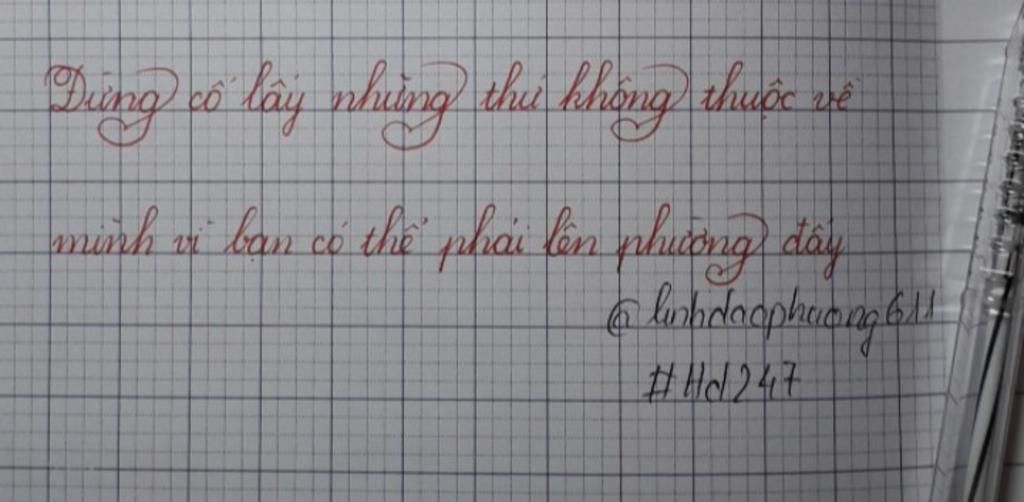 Đừng cố lấy những thứ không thuộc về
mình vì bạn có thể phải lên phường đấy
@linhdaophuong611
#Hd247